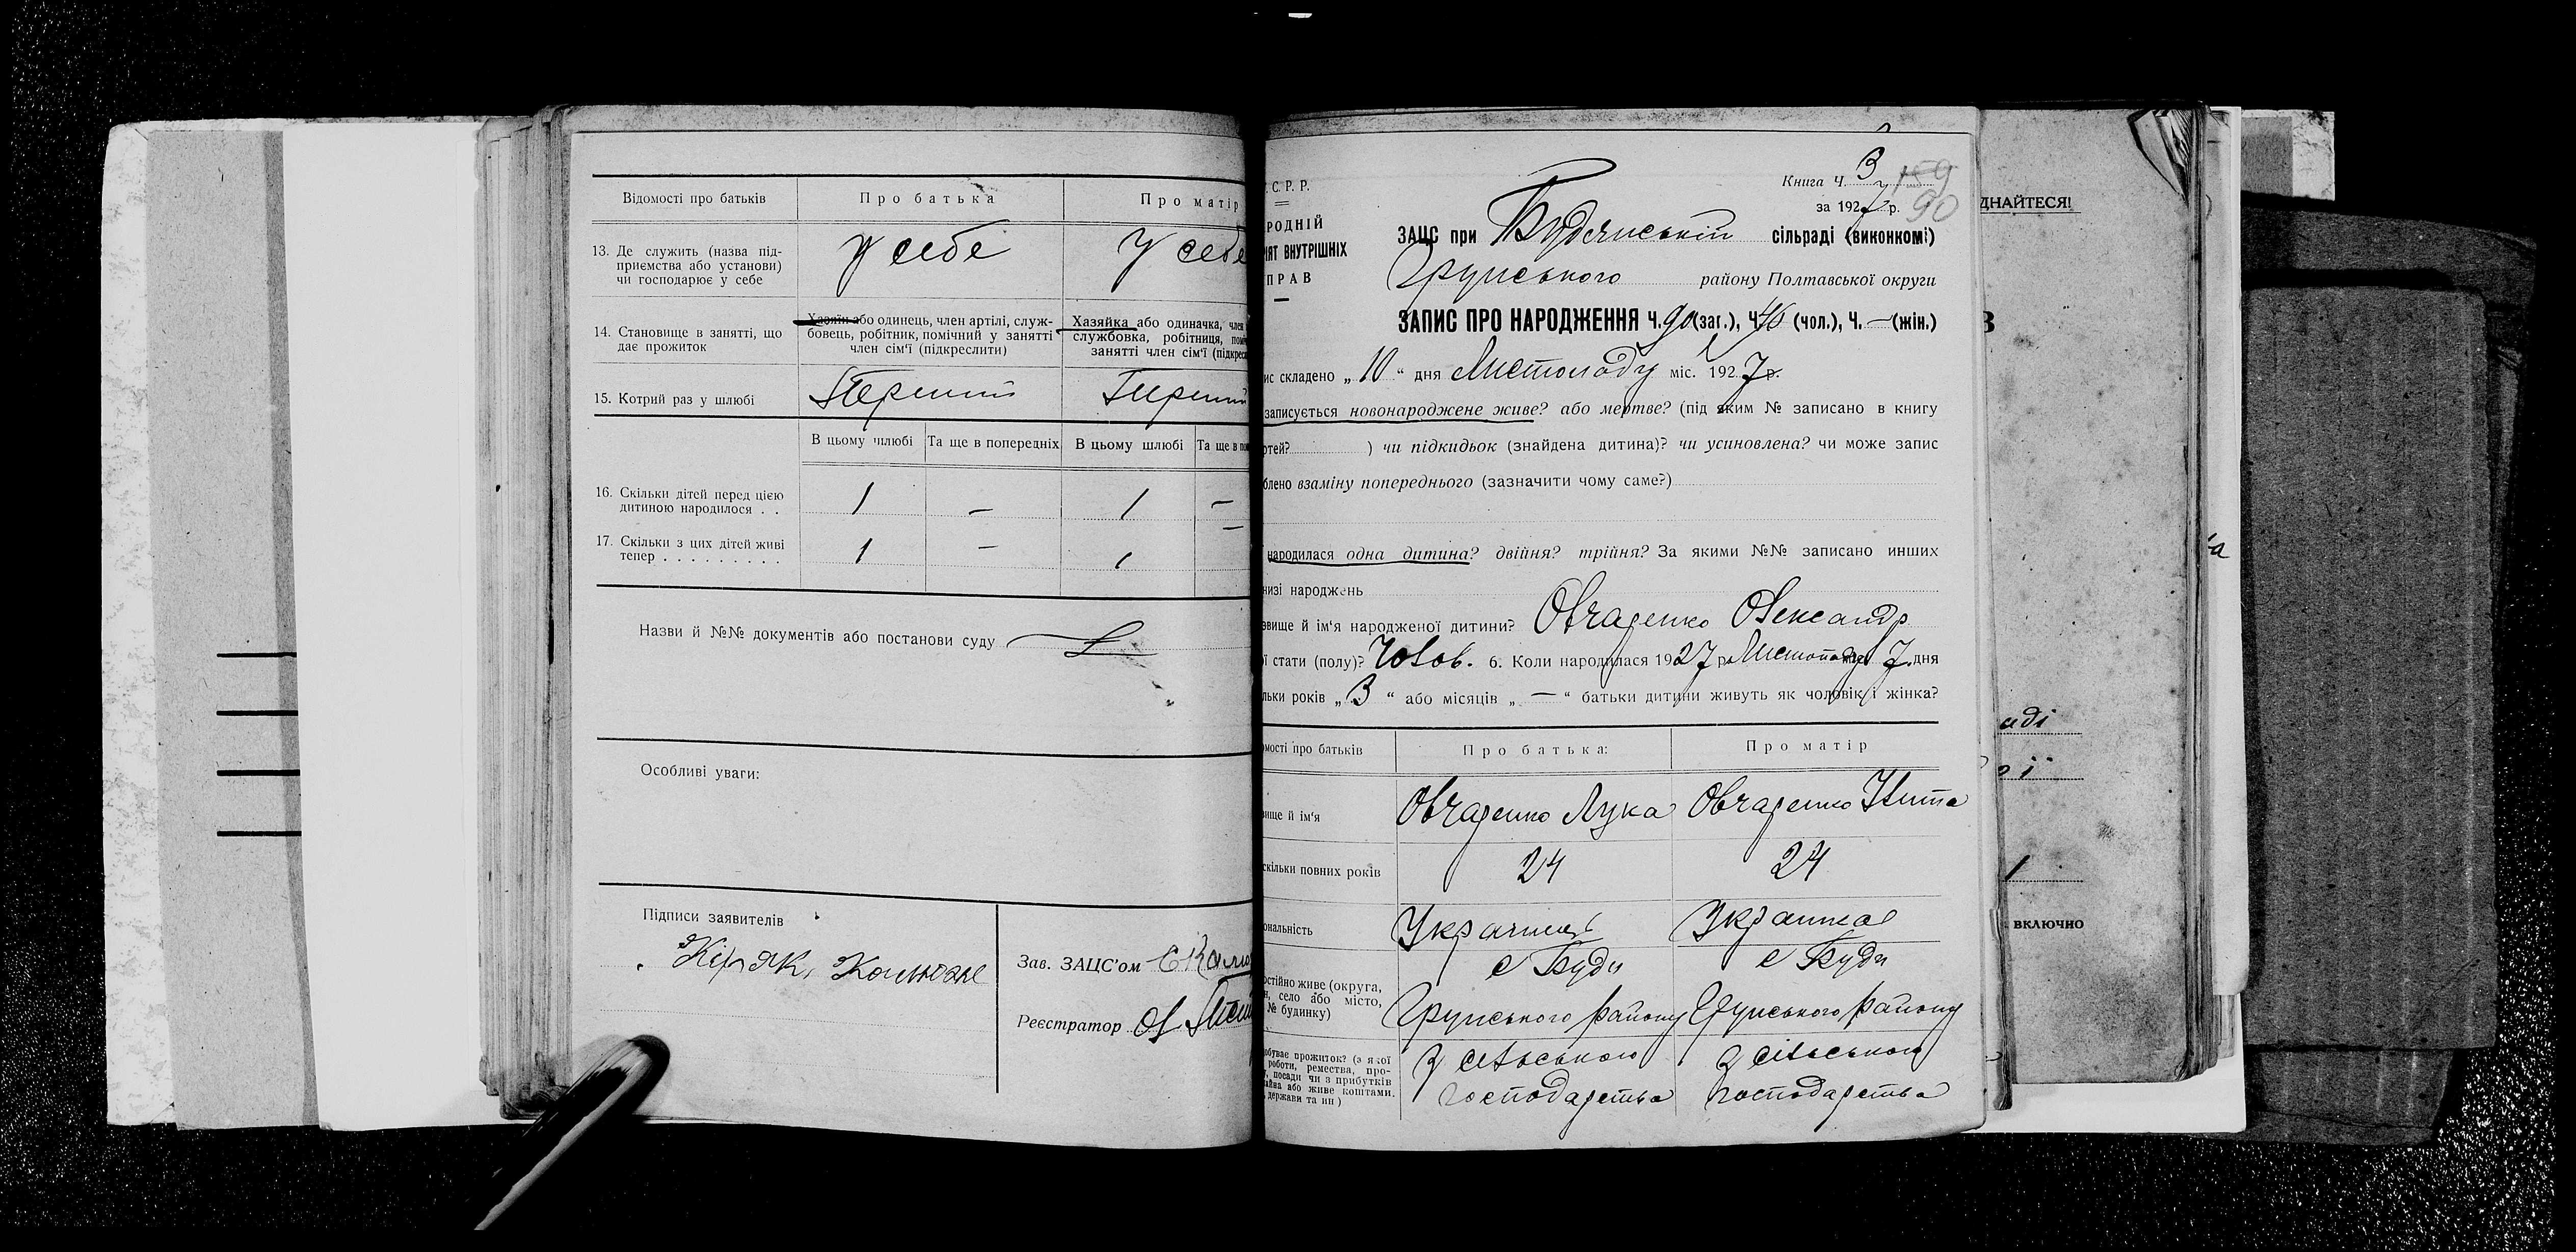 Відомості про батьків
Про батька
Про матір
13. Де служить (назва під-
приємства або установи)
чи господарює у себе
у себе
у себе
14. Становище в занятті, що
дає прожиток
Хазяїн або одинець, член артілі, служ-
бовець, робітник, помічний у занятті
член сім'ї (підкреслити)
Хазяйка або одиначка, член
службовка, робітниця,
занятті член сім'ї
15. Котрий раз у шлюбі
Перший
Перший
В цьому шлюбі
Та ще в попередніх
В цьому шлюбі
Та ще в
16. Скільки дітей перед цією
дитиною народилося . .
1 — 1 —
17. Скільки з цих дітей живі
тепер . . . . . . . . .
1 — 1 —
Назви й №№ документів або постанови суду
Особливі уваги:
Підписи заявителів
Зав. ЗАЦС'ом
Реєстратор
С. Р. Р.
РОДНІЙ
ІЯТ ВНУТРІШНІХ
ПРАВ
Книга Ч. 3
159
за 1927 р.
90
ЗАЦС при Будянській сільраді (виконкомі)
Грунського району Полтавської округи
ЗАПИС ПРО НАРОДЖЕННЯ Ч. 90 (заг.), Ч. 40 (чол.), Ч. — (жін.)
ис складено „ 10 “ дня Листопаду міс. 1927 р.
записується новонароджене живе? або мертве? (під яким № записано в книгу
ртей? ) чи підкидьок (знайдена дитина)? чи усиновлена? чи може запис
блено взаміну попереднього (зазначити чому саме?)
народилася одна дитина? двійня? трійня? За якими №№ записано инших
низі народжень
звище й ім'я народженої дитини? Овчаренко Олександр
ї стати (полу)? Чолов. 6. Коли народилася 1927 р. Листопаду 7 дня
льки років „ 3 “ або місяців „ — “ батьки дитини живуть як чоловік і жінка?
мості про батьків
Про батька:
Про матір
вище й ім'я
Овчаренко Лука
Овчаренко
скільки повних років
24
24
ональність
Українець
Українка
остійно живе (округа,
н, село або місто,
№ будинку)
с Буди
Грунського району
с Буди
Грунського району
обуває прожиток? (з якої
роботи, ремества, про-
, посади чи з прибутків
айна або живе коштами.
, держави та ин)
З сільського
господарства
З сільського
господарства
ДНАЙТЕСЯ!
В
аді
ої
1
ВКЛЮЧНО